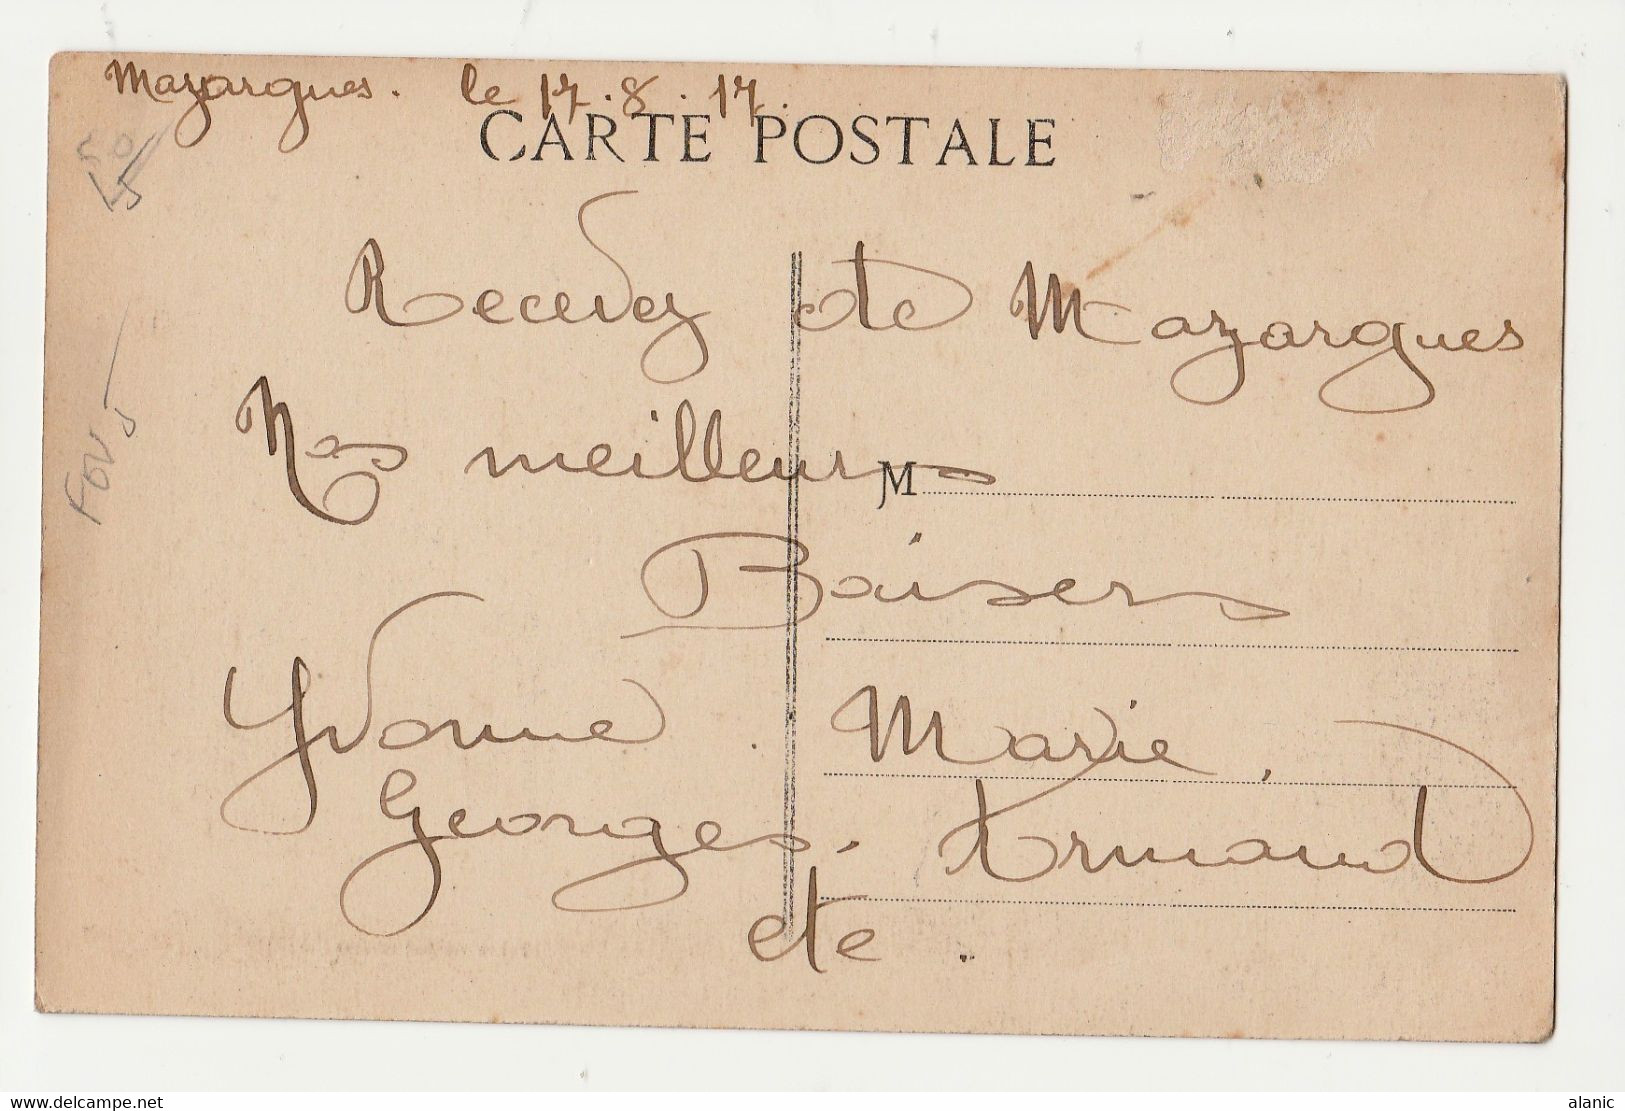 Mazargues. le 17.8.17.
CARTE POSTALE
Recevez de Mazargues
Nos meilleurs
M
Baisers
Yvonne. Marie.
Georges. Armand
etc.
www.delcampe.net
alanic